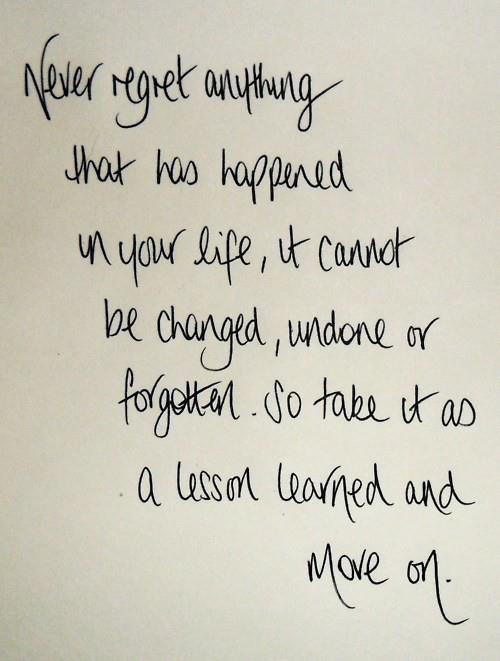 Never regret anything
that has happened
in your life, it cannot
be changed, undone or
forgotten. So take it as
a lesson learned and
move on.